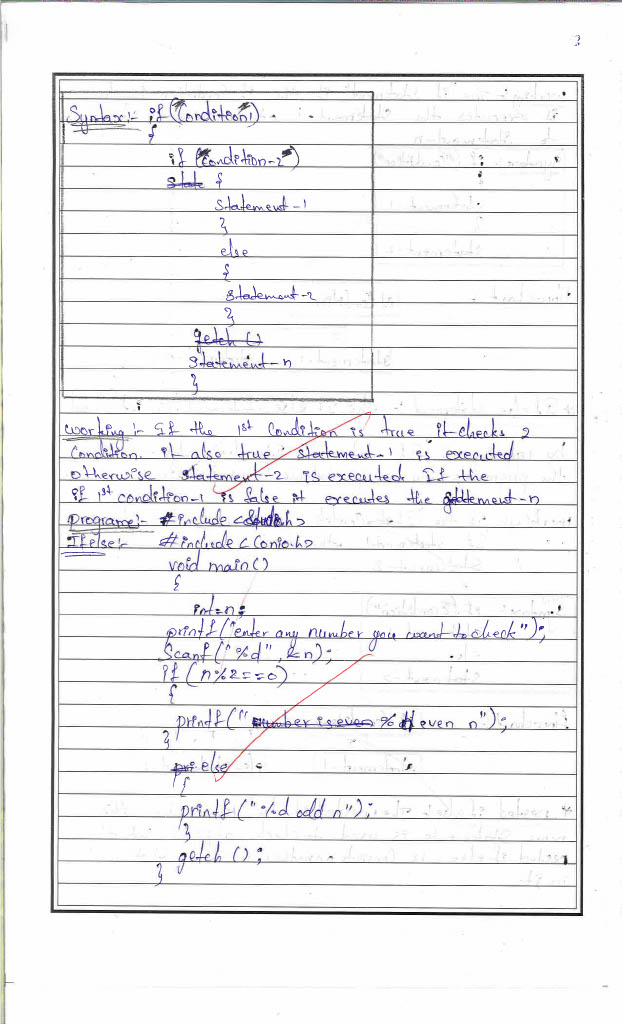 3
Syntax:- if (Condition1)
{
if (Condition-2)
{
Statement-1
}
else
{
Statement-2
}
getch ()
Statement-n
}
working:- If the 1st Condition is true it checks 2
Condition. it also true statement-1 is executed
otherwise statement-2 is executed. If the
if 1st condition-1 is false it executes the statement-n
Programe:- #include <stdio.h>
If else:- #include <Conio.h>
void main()
{
int=n;
printf("enter any number you want to check");
Scanf("%d", &n);
if (n%2==0)
{
printf("number is even %d even n");
}
pri else
{
printf("%d odd n");
}
getch ();
}